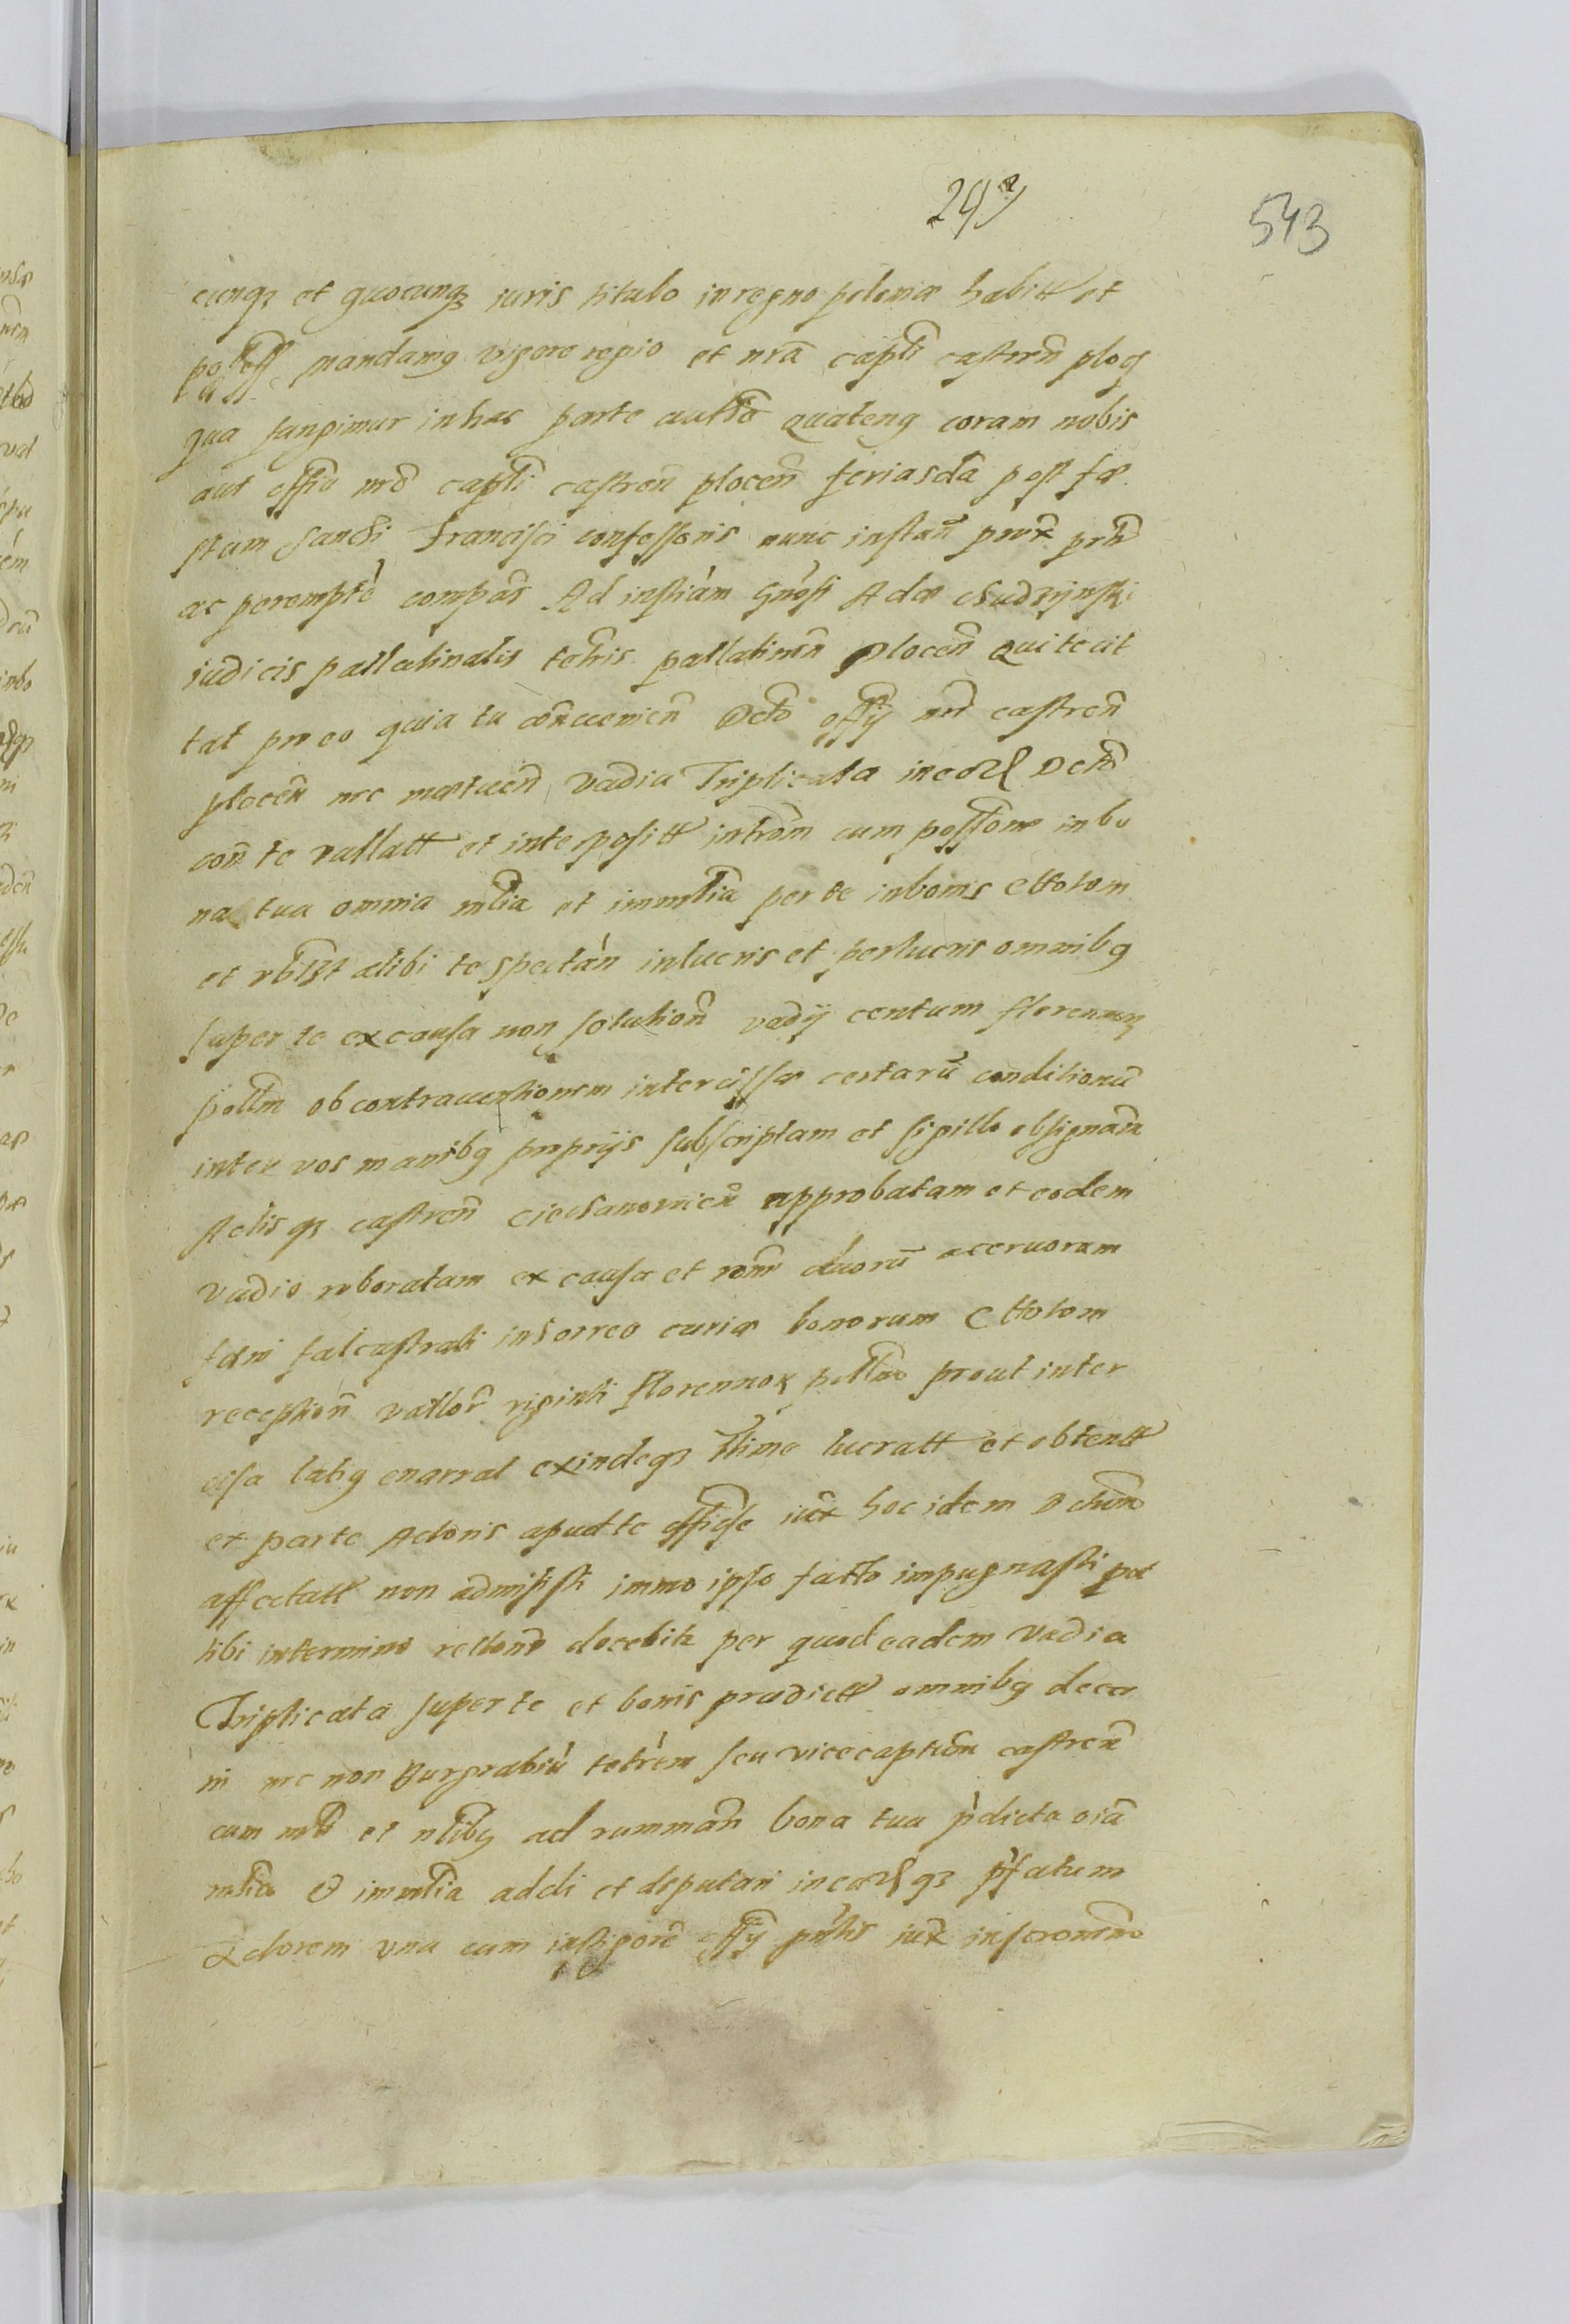 543
cunq3 et quocunq3 iuris titulo in regno poloniæ habitt et
possess mandamg vigore regio et nrã capli castren ploc
qua fungimur in hac parte autto Quateng coram nobis
aut offio nro capli castren plocen feria sda post fe
stum Sancti Francisci confessoris nunc instan prox prti
ac perempte compar Ad instiam Gnosi Adæ
iudicis pallatinalis terris pallatinen plocen Qui te cit
tat pro eo quia tu convenien Octo offy nri castren
plocen nec metuen vadia Triplicata in eod Octo
con te vallatt et interpositt introm cum possone in bo
na tua omnia mlia et immlia per te in bonis
et vbilzt alibi te spectan in lucris et per lucris omnibg
super te ex causa non solution vady centum florenorum
pollm ob contrauentionem intercissæ certarũ conditionũ
inter vos manibg proprys subscriptam et sigillo obsignam
Actis q3 castren ciechanovicen approbatam et eodem
vadio roboratam ex causa et rone duorũ aceruorum
fæni falcastrali in horreo curiæ bonorum
reception vallor viginti florennor pollm prout inter
cisa latig enarrat exindeq3 ttime lucratt et obtentt
ex parte Actoris apud te officiose iux hoc idem Octum
affectatt non admisisti immo ipso facto impugnasti pat
tibi in termino rellone docebitr per quod eadem vadia
Triplicata super te et bonis prædictt omnibg decer
ni nec non Burgrabiũ terrem seu vicecaptum castren
cum mli et nlibg ad rumman bona tua pdicta oiã
mlia & immlia addi et deputari in eod q3 pfatum
Actorem vna cum instigore offy pntis iux